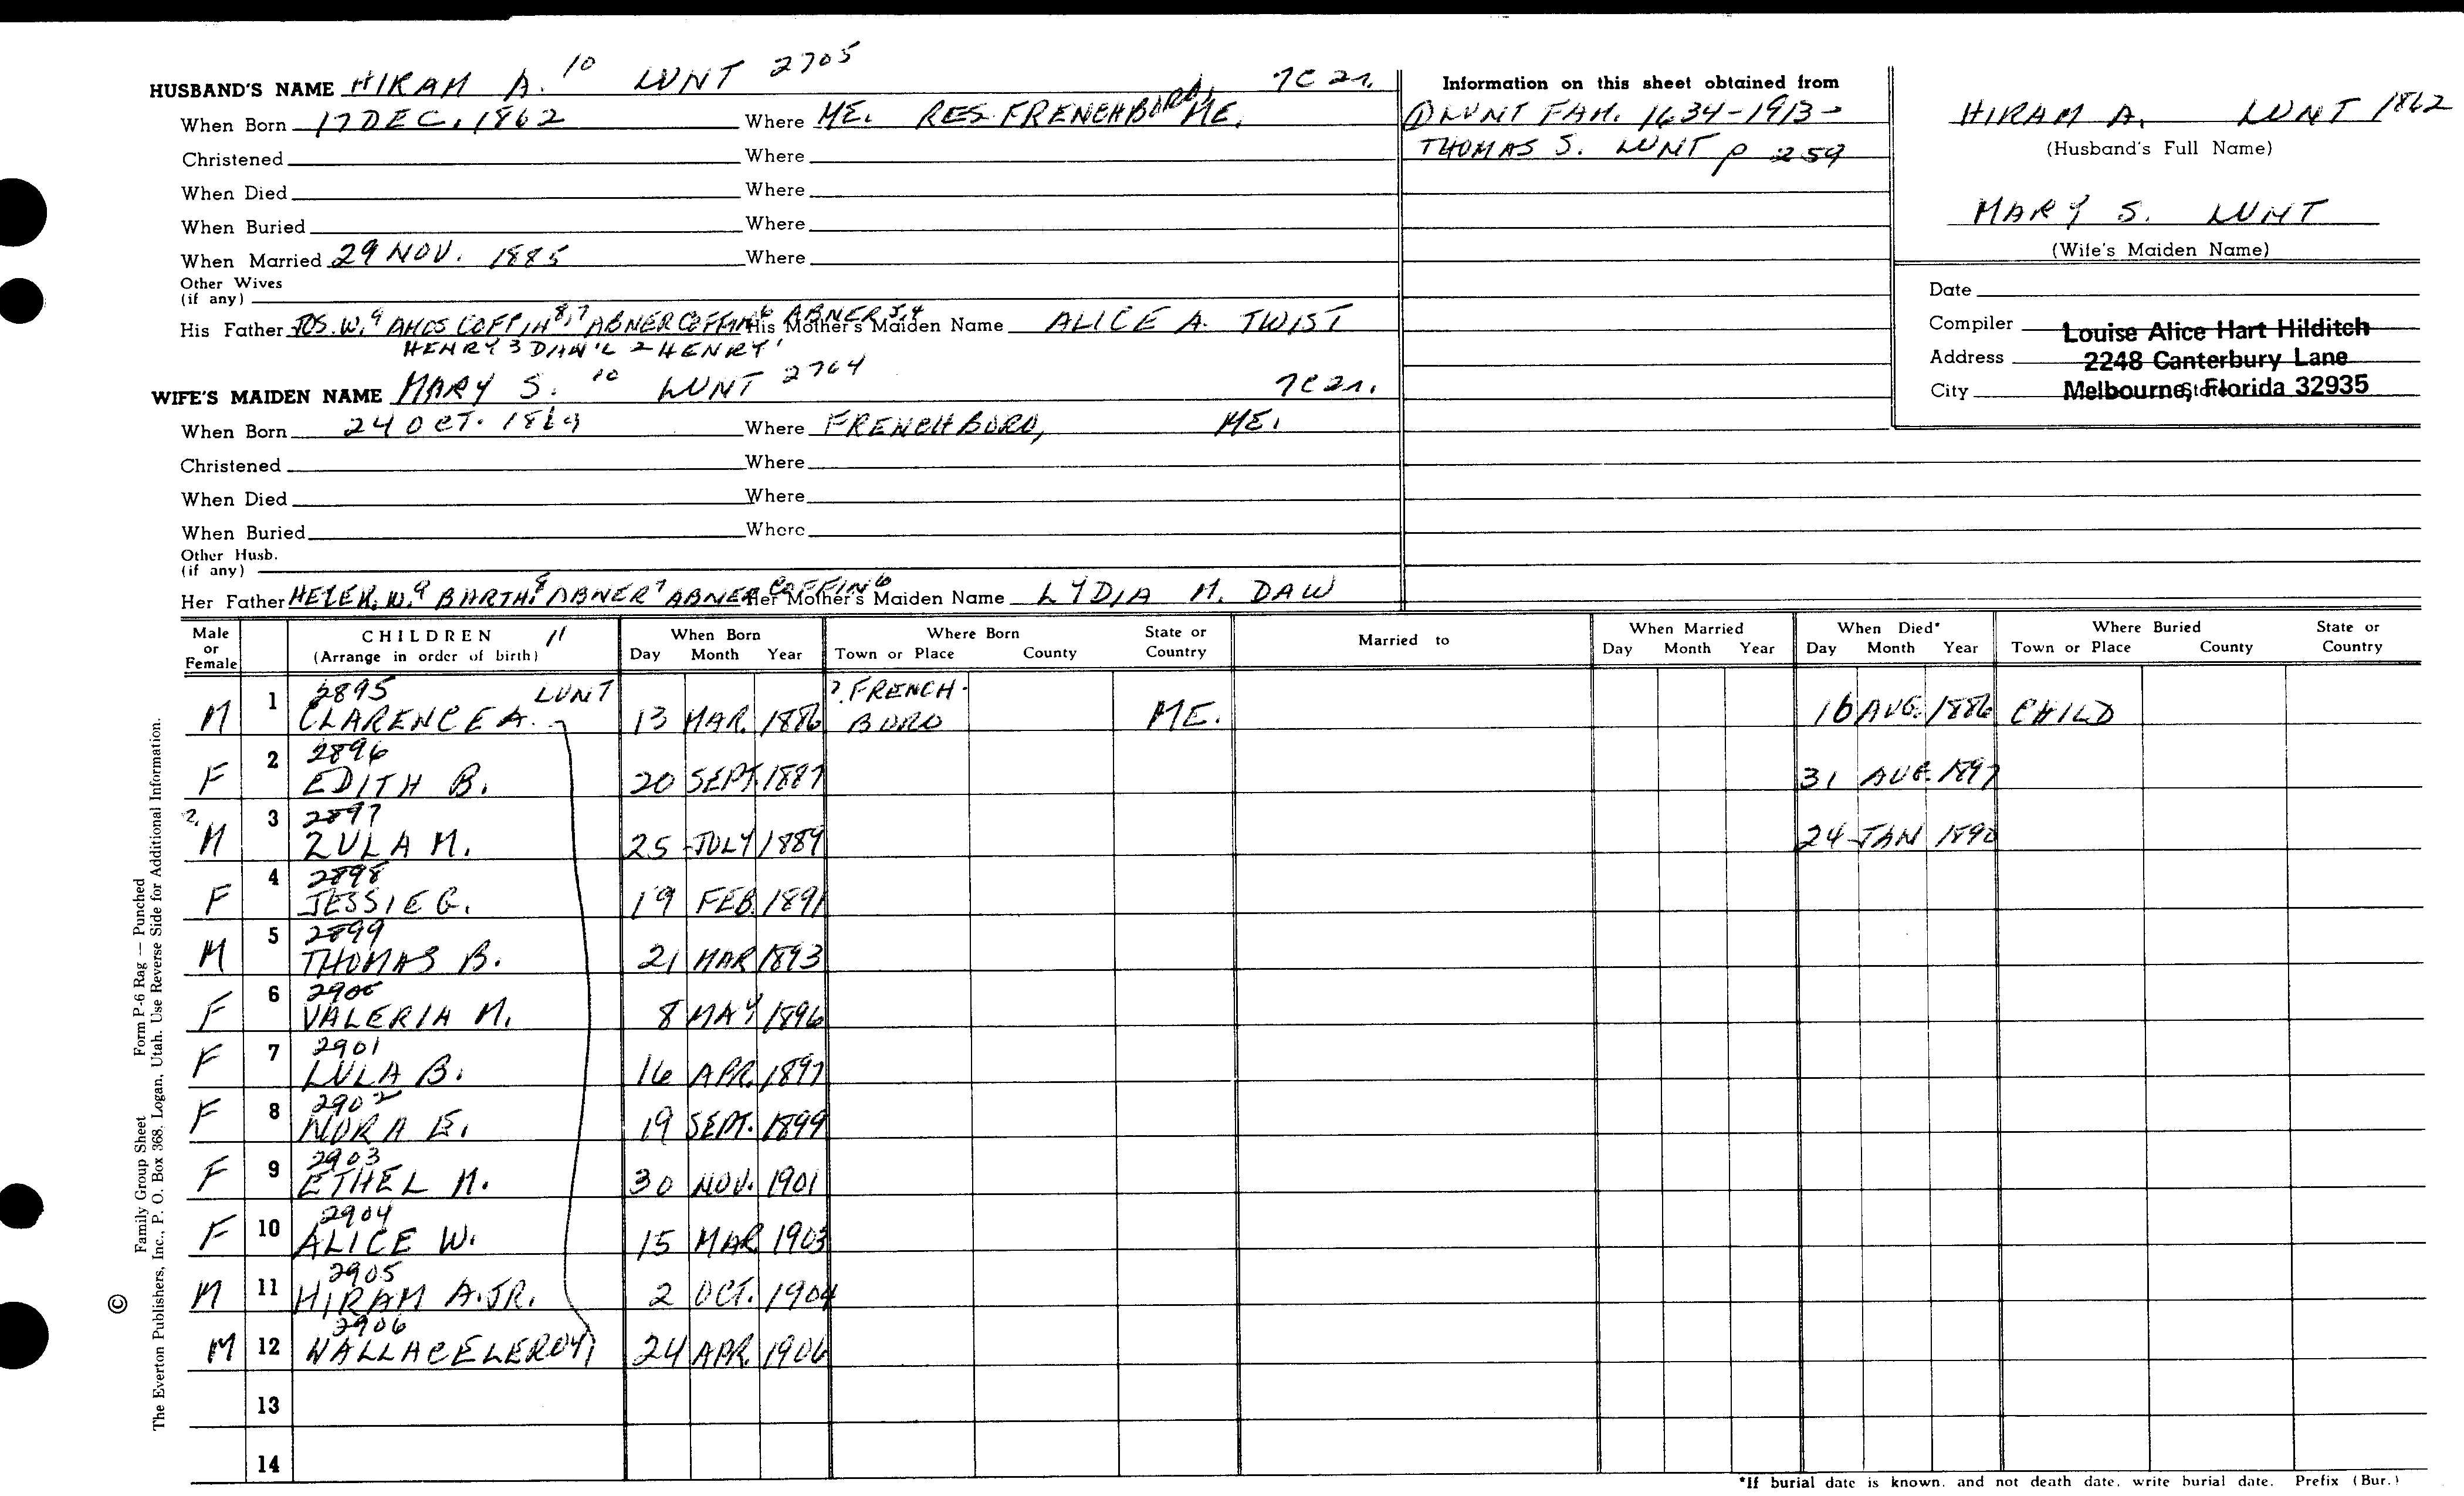 HUSBAND'S NAME HIRAM A. 10 LUNT 2705 7C 2r.
When Born 17 DEC. 1862 Where ME. RES. FRENCHBORO, ME.
Christened Where
When Died Where
When Buried Where
When Married 29 NOV. 1885 Where
Other Wives
(if any)
His Father JOS. W.9 AMOS COFFIN8,7 ABNER COFFIN6 ABNER5,4 His Mother's Maiden Name ALICE A. TWIST
HENRY 3 DAN'L 2 HENRY1
WIFE'S MAIDEN NAME MARY S. 10 LUNT 2764 7C 2r.
When Born 24 OCT. 1869 Where FRENCHBORO, ME.
Christened Where
When Died Where
When Buried Where
Other Husb.
(if any)
Her Father HEZEK. W.9 BARTH.8 ABNER7 ABNER COFFIN6 Her Mother's Maiden Name LYDIA M. DAW
Information on this sheet obtained from
① LUNT FAM. 1634-1913-
THOMAS S. LUNT p 259
HIRAM A. LUNT 1862
(Husband's Full Name)
MARY S. LUNT
(Wife's Maiden Name)
Date
Compiler Louise Alice Hart Hilditch
Address 2248 Canterbury Lane
City Melbourne, Florida 32935 State
Male or Female CHILDREN 11 (Arrange in order of birth) When Born Day Month Year Where Born Town or Place County State or Country Married to When Married Day Month Year When Died* Day Month Year Where Buried Town or Place County State or Country
M 1 2895 CLARENCE A. LUNT 13 MAR. 1886 ? FRENCH-BORO ME. 16 AUG. 1886 CHILD
F 2 2896 EDITH B. 20 SEPT. 1887 31 AUG. 1897
?. M 3 2897 ZULA M. 25 JULY 1889 24 JAN 1890
F 4 2898 JESSIE G. 19 FEB. 1891
M 5 2899 THOMAS B. 21 MAR 1893
F 6 2900 VALERIA M. 8 MAY 1896
F 7 2901 LULA B. 16 APR. 1897
F 8 2902 NORA E. 19 SEPT. 1899
F 9 2903 ETHEL M. 30 NOV. 1901
F 10 2904 ALICE W. 15 MAR 1903
M 11 2905 HIRAM A. JR. 2 OCT. 1904
M 12 2906 WALLACE LEROY 24 APR. 1906
13
14
*If burial date is known, and not death date, write burial date. Prefix (Bur.)
Family Group Sheet Form P-6 Rag — Punched
© The Everton Publishers, Inc., P. O. Box 368, Logan, Utah. Use Reverse Side for Additional Information.